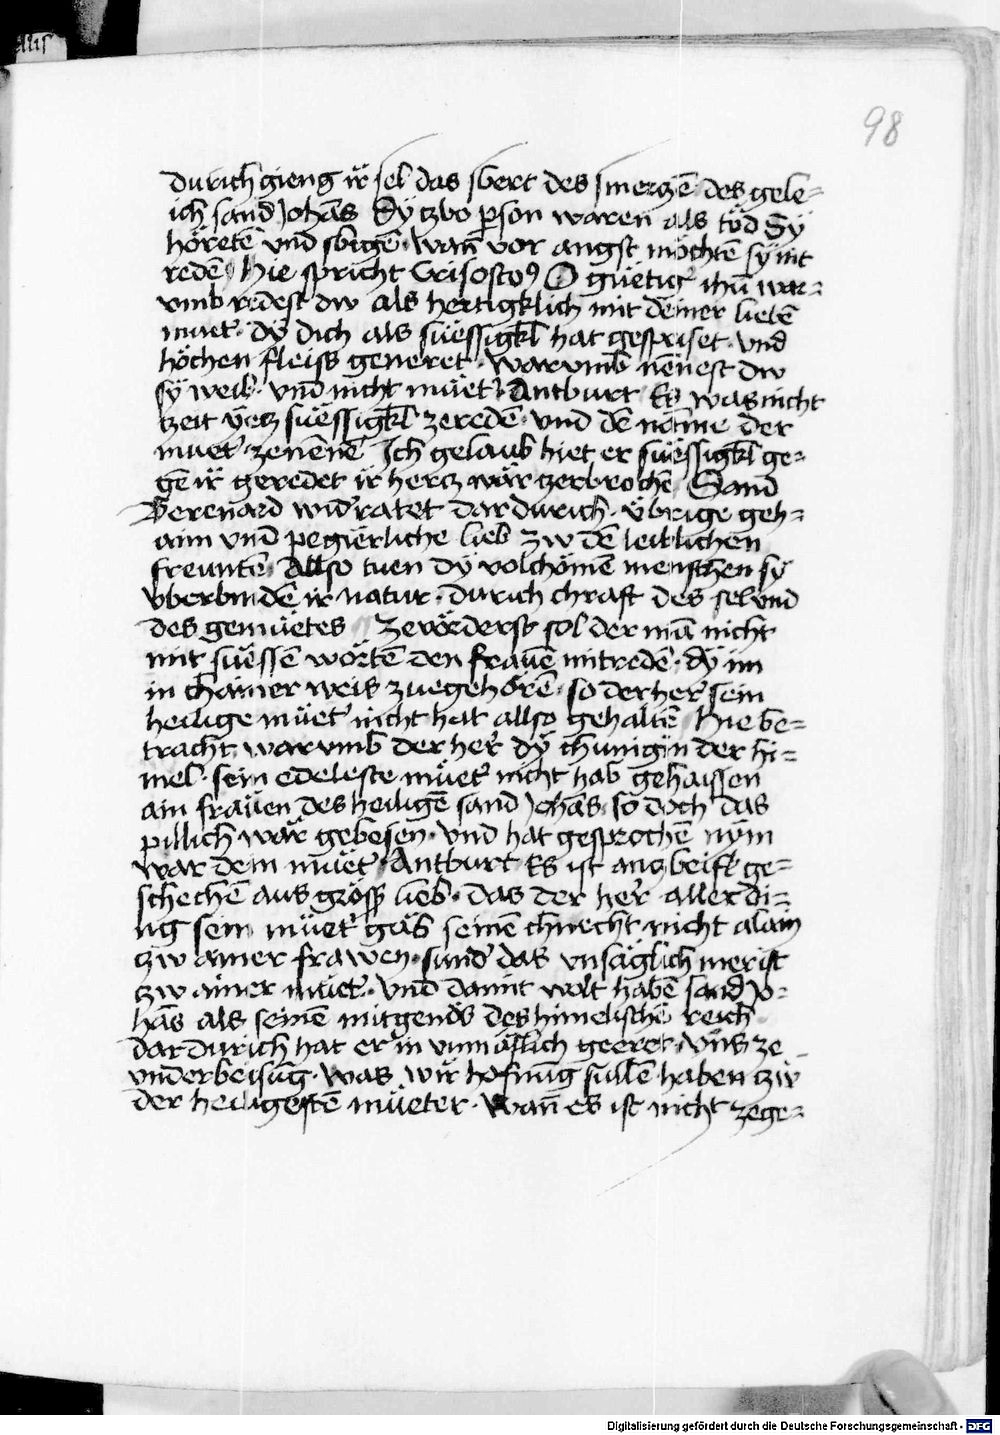 98
durich gieng ir̈ sel das sbert des smerczen̄ des gele⸗
ich sand Johan̄s Dÿ czbo ꝑson waren als töd Sÿ
höreten̄ vnd sbigen̄ · wan̄ vor angst möchten̄ sÿ nit
reden̄ Hie spricht Crisostoꝰ O güetiḡ ihū war⸗
vmb redest dw als hertigklich mit deiner lieben̄
muet̄ · dÿ dich als süessigkl̄ hat gespeiset · vnd
höchen fleiss generet · warvmb nen̄est dw
sÿ weib · vnd nicht müet̄ · Antburt Es was nicht
zeit ÿecz süessigkl̄ zereden̄ · vnd den̄ nom̄e der
muet̄ · zenen̄en̄ Ich gelaub hiet er süessigkl̄ ge⸗
gen̄ ir̈ geredet ir̈ hercz wär zerbrochen̄ Sand
Berenard wid̄ratet dardurich · übrige geh⸗
aim vnd pegierliche lieb zw den̄ leiblichen
freunten̄ Allso tuen dÿ volchömen̄ menschen sÿ
vberbinden̄ ir natur · durich chraft des sel vnd
des gemüetes Zevörderst sol der man̄ nicht
mit süessen̄ worten̄ den frauen̄ mitreden̄ · dÿ im
in chainer weis zuegehören̄ · so der her̄ sein
heilige müet̄ nicht hat allso gehalten̄ Hie be⸗
tracht warvmb der her̄ dÿ chunigin der hi⸗
mel · sein edeleste müet̄ nicht hab gehaissen
ain frauen des heiligen̄ sand Johan̄s · so doch das
pillich wär gebesen · vnd hat gesprochen̄ nÿm
war dein müet̄ · Antburt Es ist anzbeifl̄ ge⸗
schechen̄ aus gröss̄ lieb · das der her̄ aller di⸗
ng sein müet̄ gab seinen̄ chnecht nicht alain
zw ainer frawen · sund̄ das vnsäglich mer ist
zw ainer müet̄ · vnd damit wolt haben̄ sand Jo⸗
han̄s als seinen̄ mitgenos̄ des himelischen̄ reich
dardurich hat er in vnmässlich geeret · vns ze
vnderbeisung · was wir hofnung sullen̄ haben zw
der heiligesten̄ müeter · wan̄ es ist nicht zege⸗
Digitalisierung gefördert durch die Deutsche Forschungsgemeinschaft - DFG